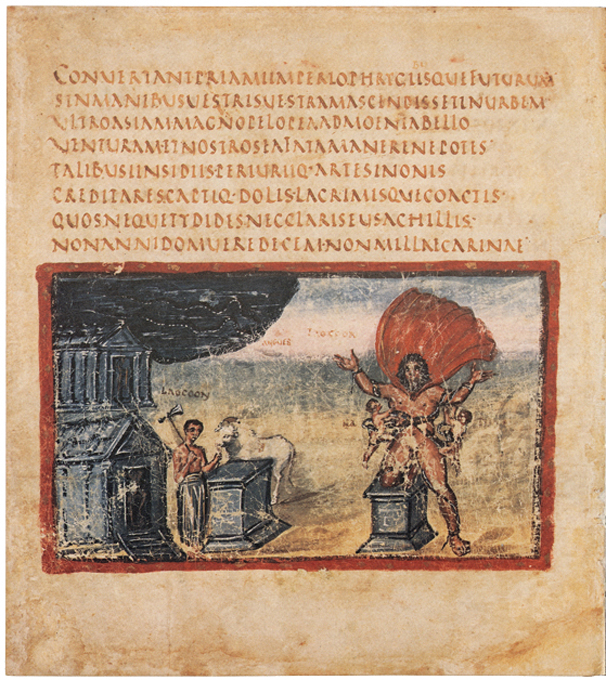 CONVERTANTPRIAMIIMPERIOPHRYGIISQUEFUTURUM
SINMANIBUSUESTRISUESTRAMASCENDISSETINURBEM
ULTROASIAMMAGNOPELOPEAADMOENIABELLO
UENTURAMETNOSTROSEAFATAMANERENEPOTES
TALIBUSINSIDIISPERIURIQ·ARTESINONIS
CREDITARESCAPTIQ·DOLISLACRIMISQUECOACTIS·
QUOSNEQUETYDIDESNECCLARISEUSACHILLIS
NONANNIDOMUEREDECEM·NONMILLECARINAE
LAOCOON
ANGUES
LAOCOON
NA TI